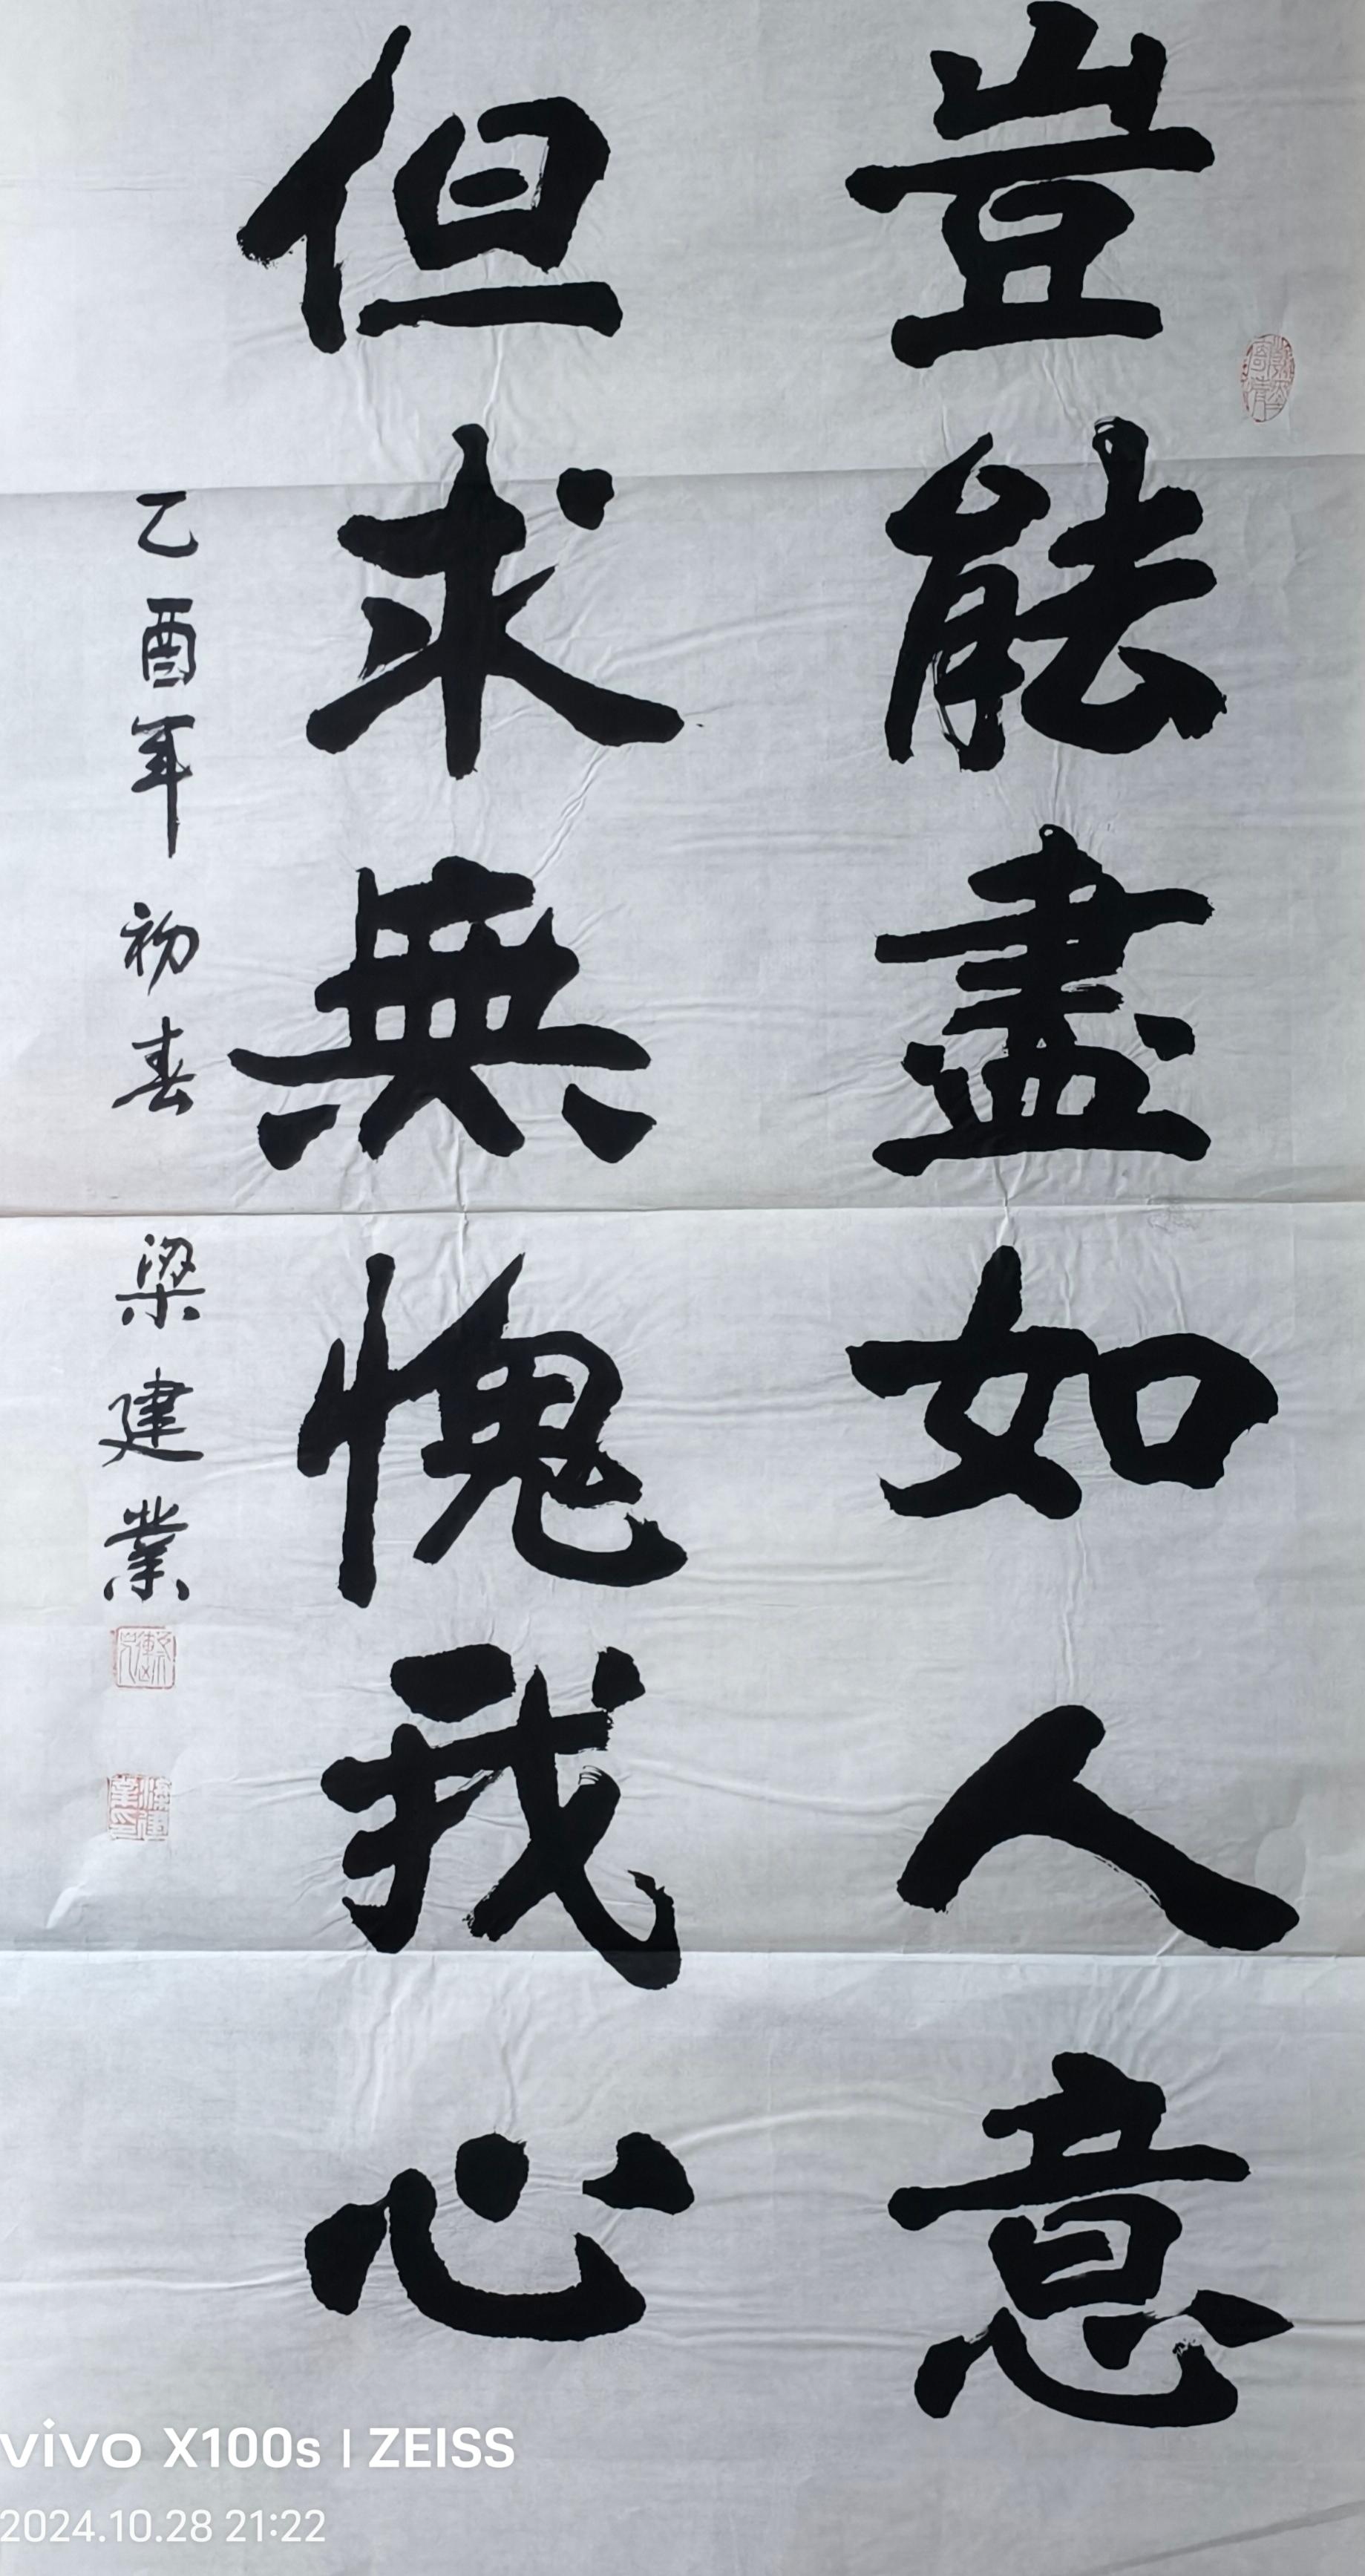 豈能盡如人意
但求無愧我心
乙酉年初春 梁建業
vivo X100s | ZEISS
2024.10.28 21:22